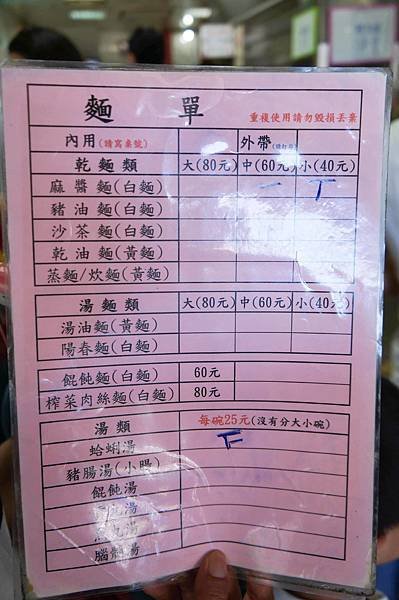 麵 單 重複使用請勿毀損丟棄
內用(請寫桌號) 外帶
乾麵類 大(80元) 中(60元) 小(40元)
麻醬麵(白麵) 一 丅
豬油麵(白麵)
沙茶麵(白麵)
乾油麵(黃麵)
蒸麵/炊麵(黃麵)
湯麵類 大(80元) 中(60元) 小(40元)
湯油麵(黃麵)
陽春麵(白麵)
餛飩麵(白麵) 60元
榨菜肉絲麵(白麵) 80元
湯類 每碗25元(沒有分大小碗)
蛤蜊湯
豬腸湯(小腸)
餛飩湯
丸湯
湯